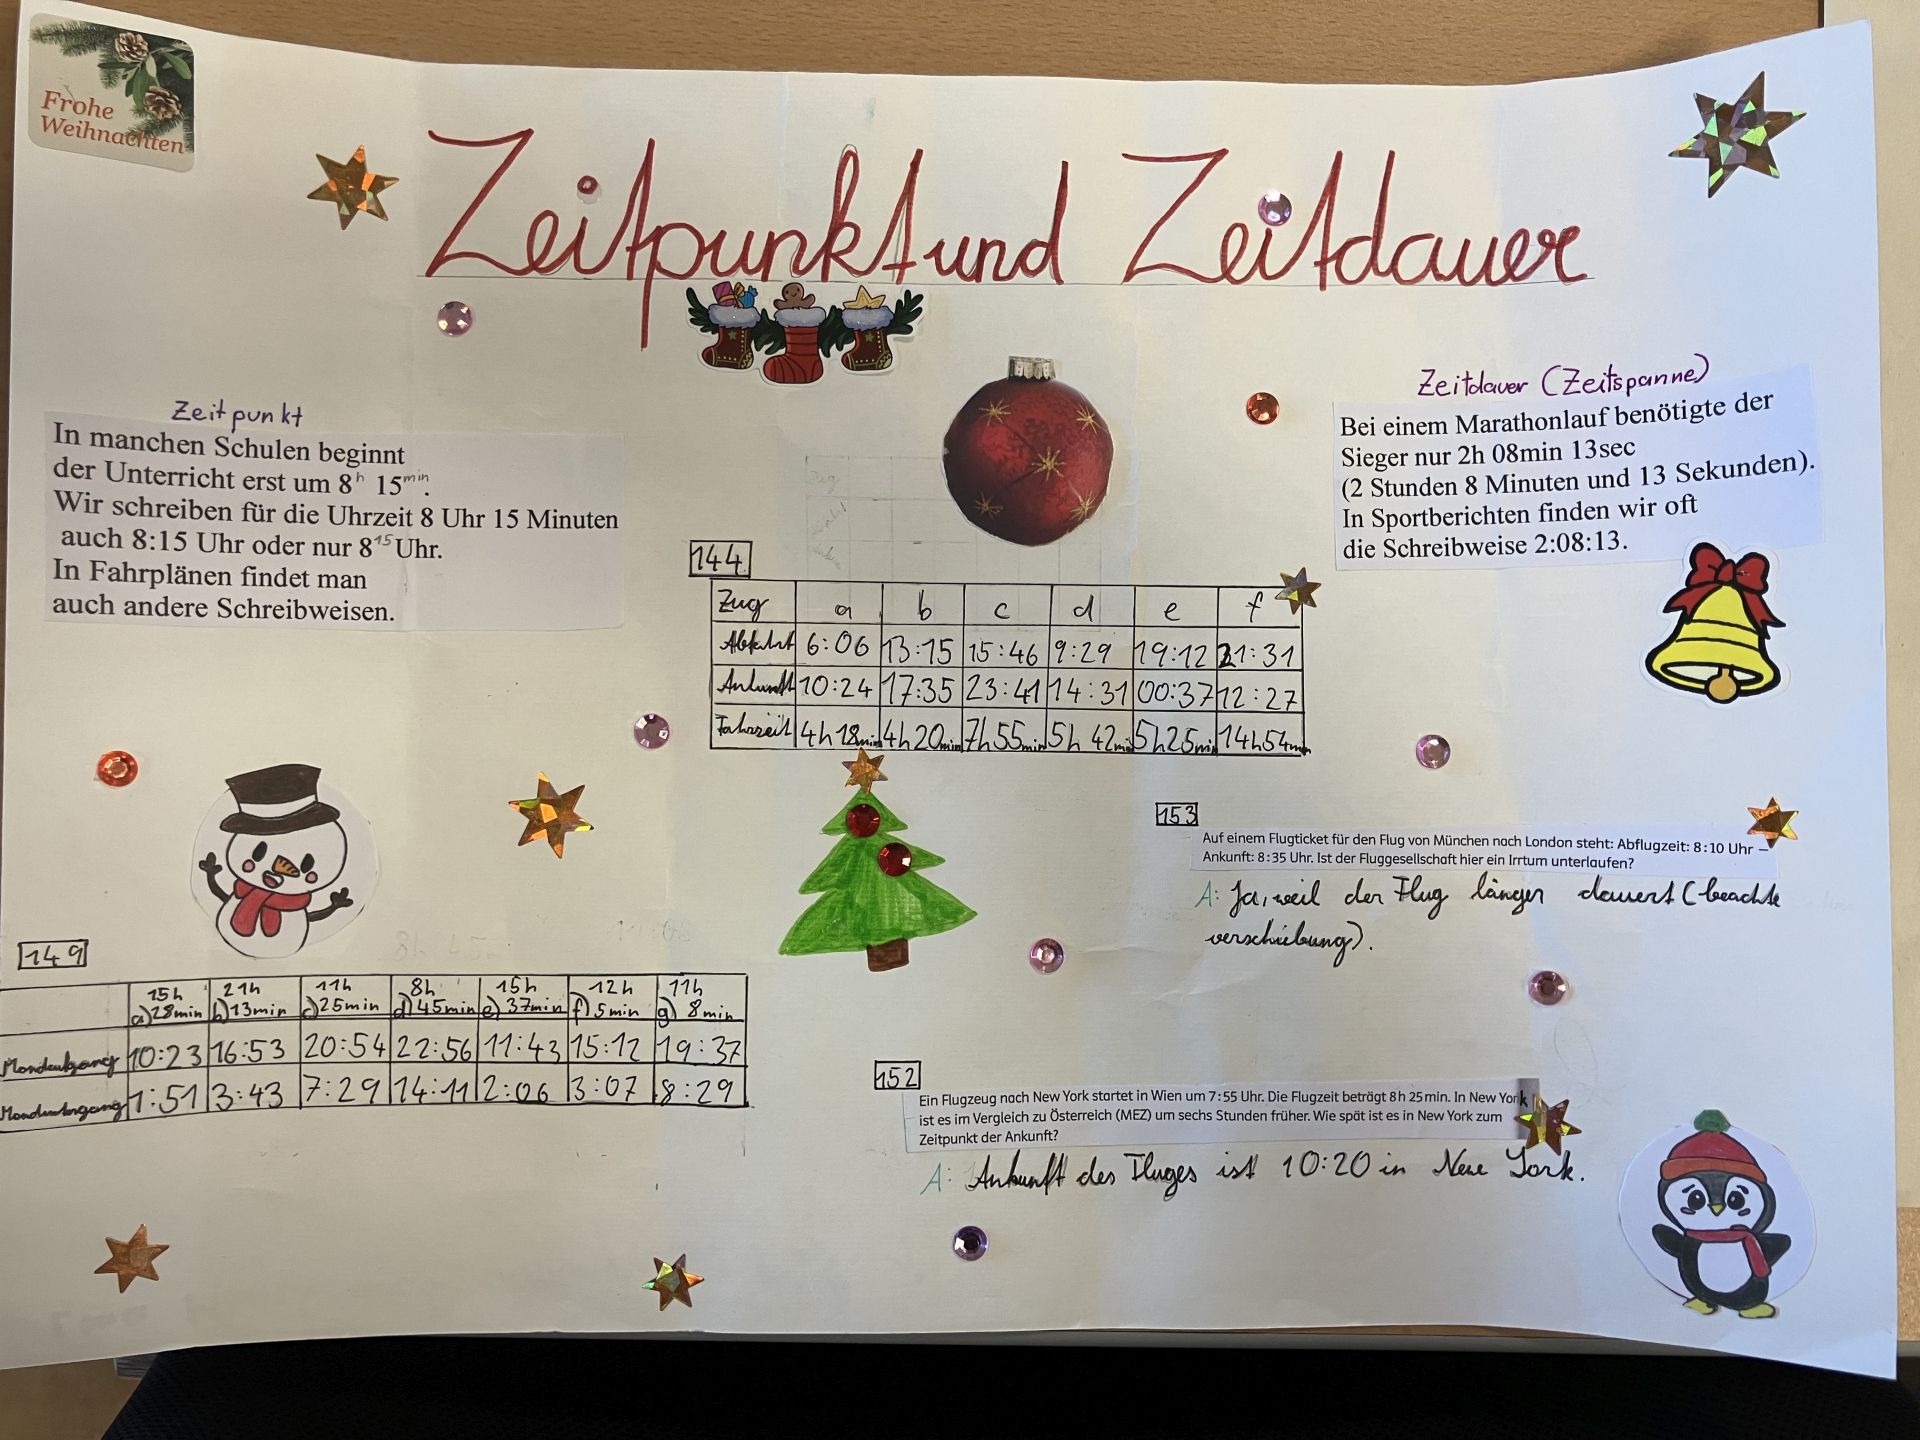 Frohe
Weihnachten
Zeitpunkt und Zeitdauer
Zeitpunkt
In manchen Schulen beginnt
der Unterricht erst um 8h 15min.
Wir schreiben für die Uhrzeit 8 Uhr 15 Minuten
auch 8:15 Uhr oder nur 8 15 Uhr.
In Fahrplänen findet man
auch andere Schreibweisen.
Zeitdauer (Zeitspanne)
Bei einem Marathonlauf benötigte der
Sieger nur 2h 08min 13sec
(2 Stunden 8 Minuten und 13 Sekunden).
In Sportberichten finden wir oft
die Schreibweise 2:08:13.
144
Zug a b c d e f
Abfahrt 6:06 13:15 15:46 9:29 19:12 21:31
Ankunft 10:24 17:35 23:41 14:31 00:37 12:27
Fahrzeit 4h 18min 4h 20min 7h 55min 5h 42min 5h 25min 14h 54min
153
Auf einem Flugticket für den Flug von München nach London steht: Abflugzeit: 8:10 Uhr –
Ankunft: 8:35 Uhr. Ist der Fluggesellschaft hier ein Irrtum unterlaufen?
A: Ja, weil der Flug länger dauert (beachte
verschiebung).
149
15h 21h 11h 8h 15h 12h 11h
a) 28min b) 13min c) 25min d) 45min e) 37min f) 5min g) 8min
Mondaufgang 10:23 16:53 20:54 22:56 11:43 15:12 19:37
Monduntergang 1:51 3:43 7:29 14:11 2:06 3:07 8:29
152
Ein Flugzeug nach New York startet in Wien um 7:55 Uhr. Die Flugzeit beträgt 8h 25min. In New York
ist es im Vergleich zu Österreich (MEZ) um sechs Stunden früher. Wie spät ist es in New York zum
Zeitpunkt der Ankunft?
A: Ankunft des Fluges ist 10:20 in New York.